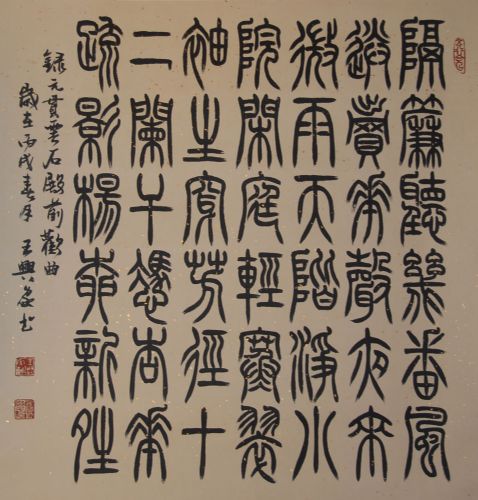 隔簾聽幾番風
送賣花聲夜來
微雨天階淨小
院閑庭輕寒翠
袖生穿芳徑十
二闌干憑杏花
疏影楊柳新晴
錄元貫雲石殿前歡曲
歲在丙戌春月王興書